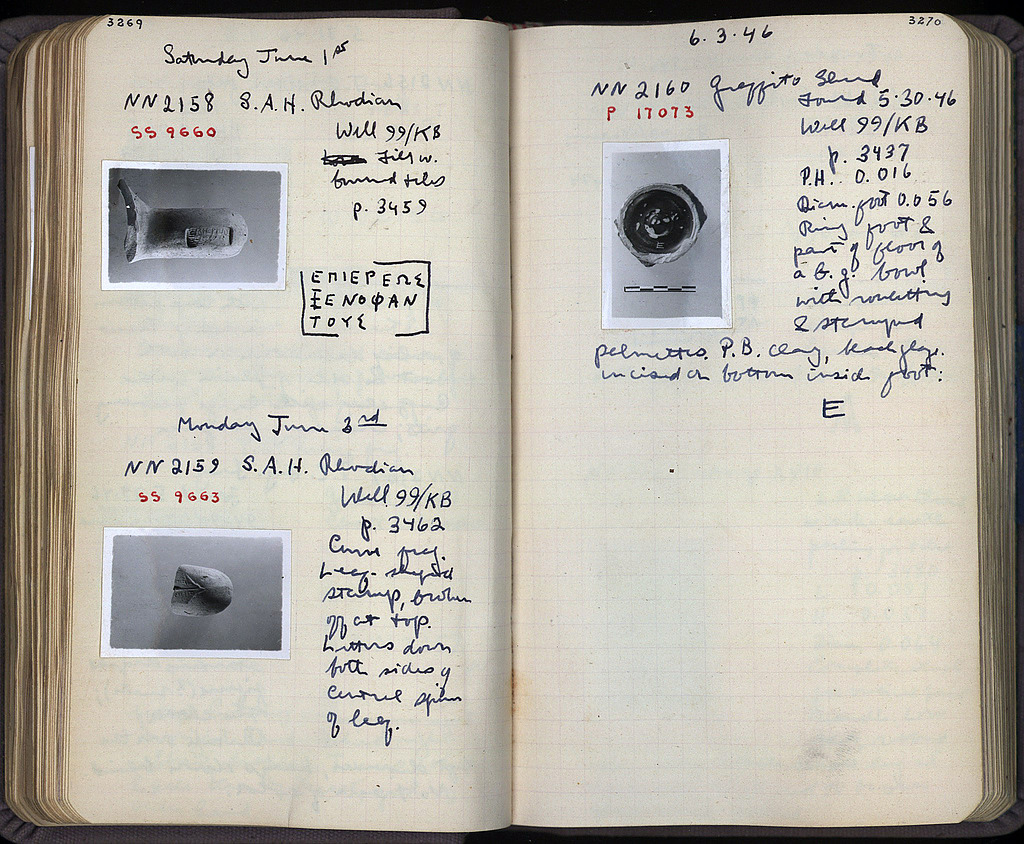 3269
Saturday June 1st
NN 2158 S.A.H. Rhodian
SS 9660
Well 99/KB
fill w.
burned tiles
p. 3459
ΕΠΙΕΡΕΩΣ
ΞΕΝΟΦΑΝ
ΤΟΥΣ
Monday June 3rd
NN 2159 S.A.H. Rhodian
SS 9663
Well 99/KB
p. 3462
Curve frag.
Leaf-shaped
stamp, broken
off at top.
Letters down
both sides of
central spine
of leaf.
3270
6.3.46
NN 2160 Graffito Sherd
P 17073
Found 5.30.46
Well 99/KB
p. 3437
P.H. 0.016
Diam. foot 0.056
Ring foot &
part of floor of
a b.g. bowl
with rouletting
& stamped
palmettes. P.B. clay, black glaze.
incised on bottom inside foot:
E